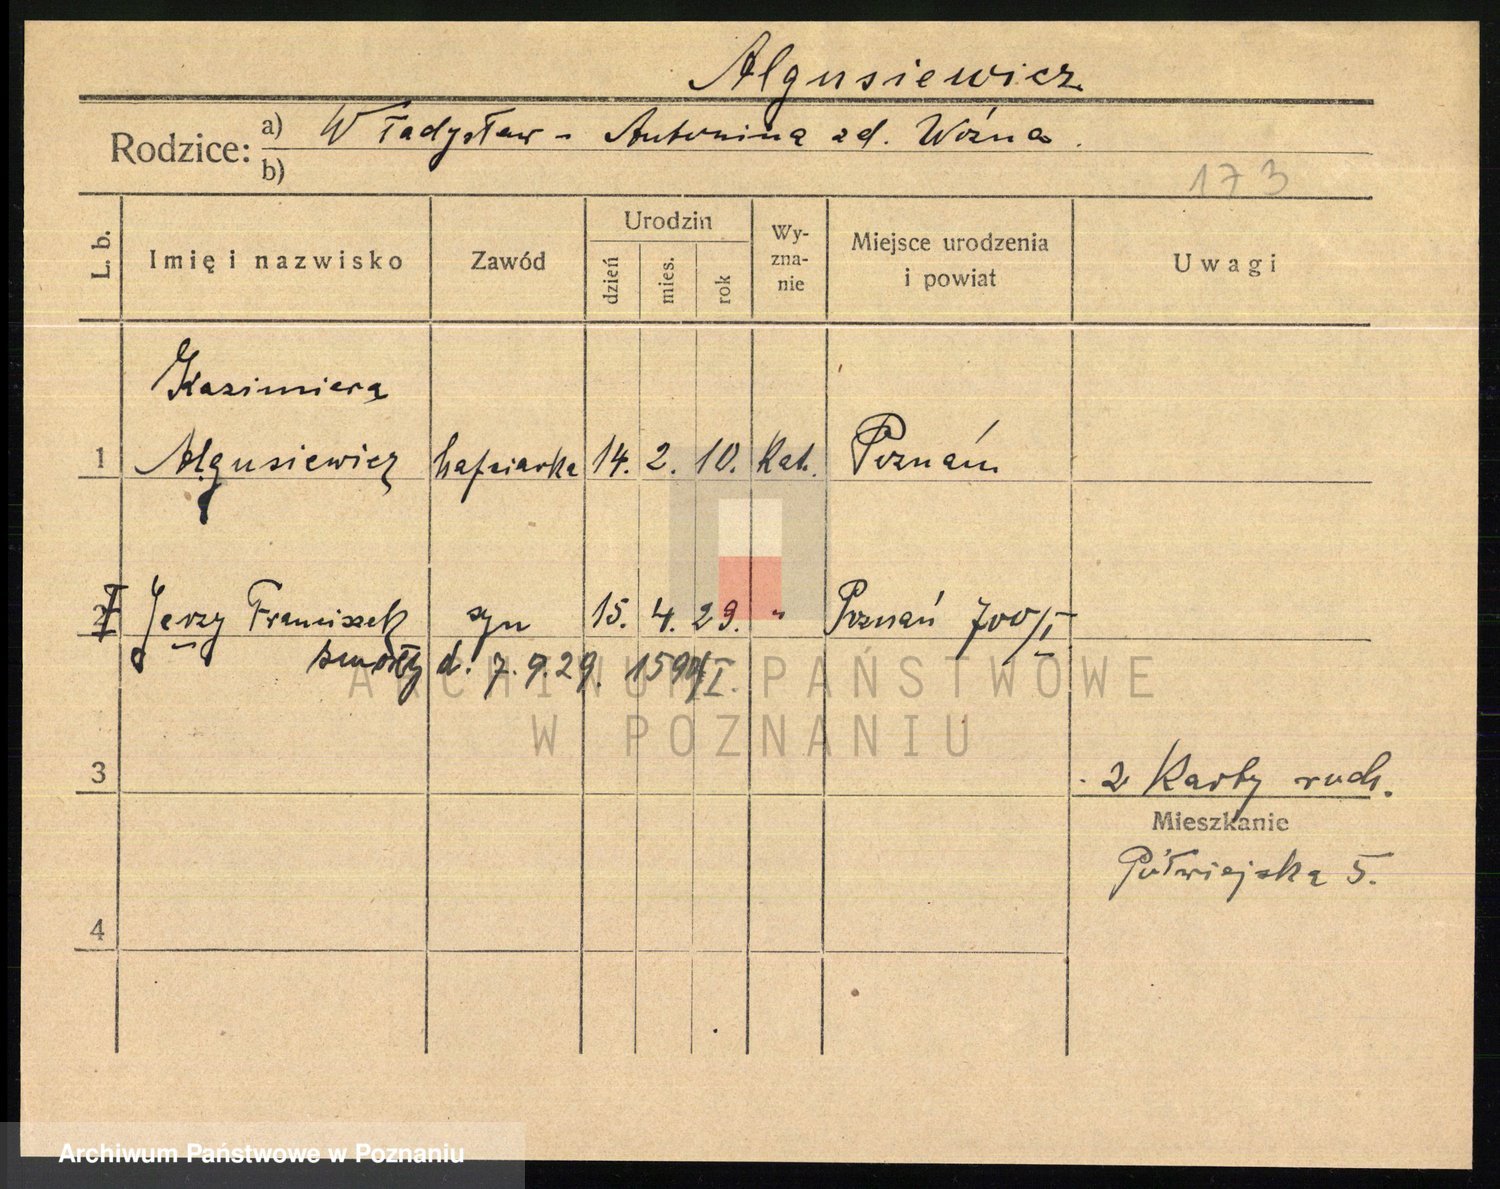 Algusiewicz
Rodzice: a) Władysław - Antonina zd. Woźna.
b)
173
L. b. Imię i nazwisko Zawód Urodzin dzień mies. rok Wy-zna-nie Miejsce urodzenia i powiat Uwagi
Kazimiera
1 Algusiewicz hafciarka 14. 2. 10. kat. Poznań
2 Jerzy Franciszek syn 15. 4. 29. " Poznań 700/I
zmarły d. 7.9.29. 1594/I.
ARCHIWUM PAŃSTWOWE
W POZNANIU
3
2 Karty ruch.
Mieszkanie
Półwiejska 5.
4
Archiwum Państwowe w Poznaniu